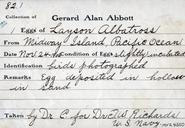 821
Collection of Gerard Alan Abbott
Eggs of Layson Albatross
From Midway Island, Pacific Ocean
Nov 24 Condition of Eggs slightly incubated
Identification birds photographed
Remarks Egg deposited in hollow
in sand
Taken by Dr C for Dr Richards
U.S. Navy